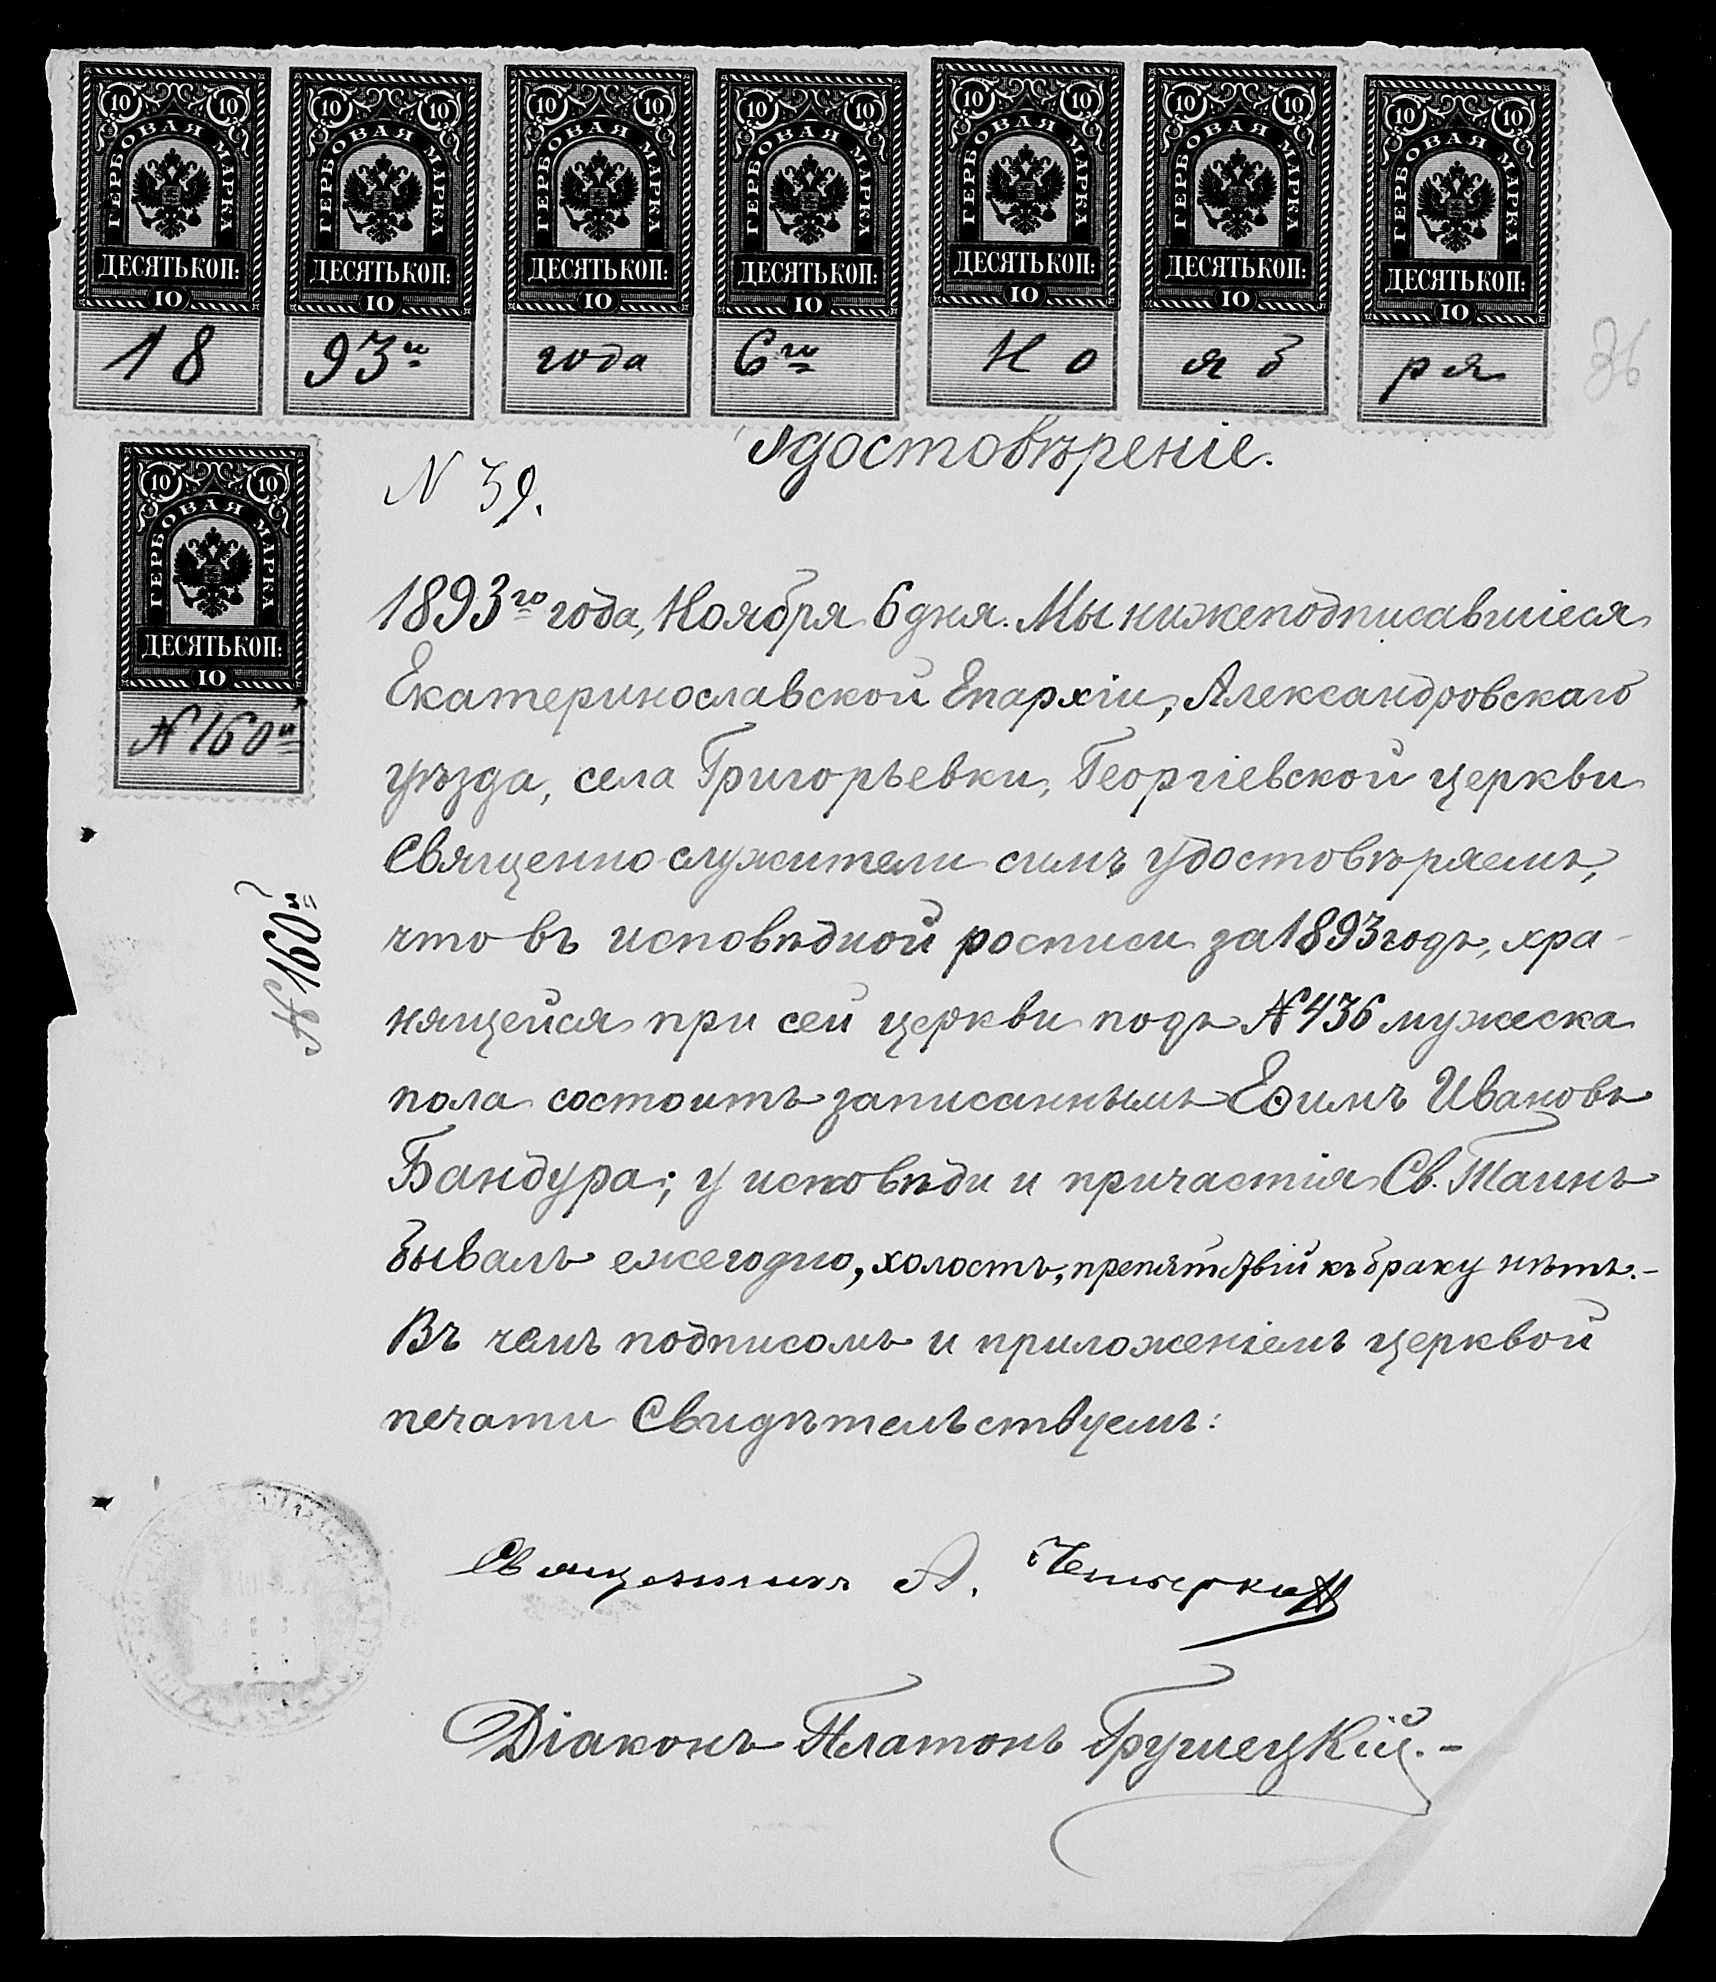 10 10 10 10 10 10 10 10 10 10 10 10 10 10
ГЕРБОВАЯ МАРКА ГЕРБОВАЯ МАРКА ГЕРБОВАЯ МАРКА ГЕРБОВАЯ МАРКА ГЕРБОВАЯ МАРКА ГЕРБОВАЯ МАРКА ГЕРБОВАЯ МАРКА
ДЕСЯТЬ КОП: ДЕСЯТЬ КОП: ДЕСЯТЬ КОП: ДЕСЯТЬ КОП: ДЕСЯТЬ КОП: ДЕСЯТЬ КОП: ДЕСЯТЬ КОП:
10 10 10 10 10 10 10
18 93го года 6го Но яб ря
Удостовѣреніе.
N 39.
10 10
ГЕРБОВАЯ МАРКА
ДЕСЯТЬ КОП:
10
№ 160й
№ 160й
1893го года, Ноября 6 дня. Мы нижеподписавшіеся
Екатеринославской Епархіи, Александровскаго
уѣзда, села Григорьевки, Георгіевской церкви
Священно служители симъ удостовѣряемъ,
что въ исповѣдной росписи за 1893 годъ, хра-
нящейся при сей церкви подъ № 436 мужеска
пола состоитъ записаннымъ Еѳимъ Ивановъ
Бандура; у исповѣди и причастія Св. Таинъ
бывалъ ежегодно, холостъ, препятствій къ браку нѣтъ.-
Въ чемъ подписомъ и приложеніемъ церквой
печати Свидѣтельствуемъ:
Священникъ А.
Діаконъ Платонъ Грушецкій.-